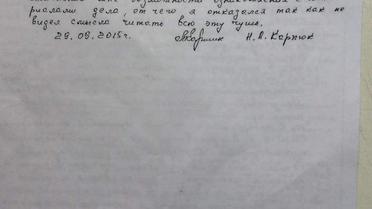 возможности ознакомления с
риалами дела, от чего я отказался так как не
видел смысла читать всю эту чушь.
28.08.2015г. Н.А. Карпюк